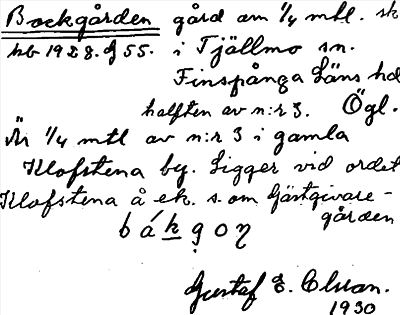 Bockgården gård om 1/4 mtl. sk
hb 1928. g 55. i Tjällmo sn.
Finspånga Läns hd
halften av n:r 3. Ögl.
Är 1/4 mtl av n:r 3 i gamla
Klofstena by. Ligger vid ordet
Klofstena å ek. s. om Gästgivare-
gården
bákgon
Gustaf E.
1930